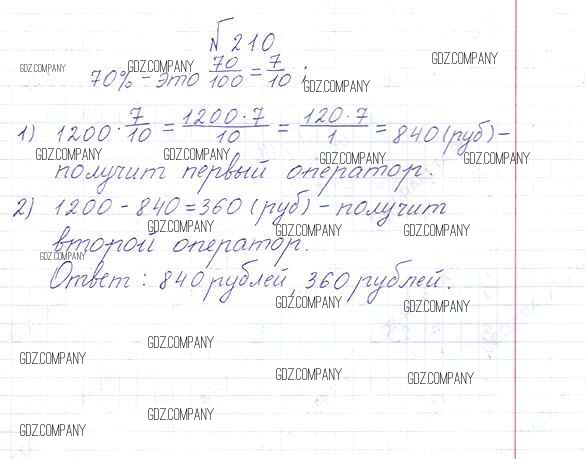 № 210
70% – это 70/100 = 7/10 ;
1) 1200 · 7/10 = 1200·7/10 = 120·7/1 = 840 (руб) –
получит первый оператор.
2) 1200 – 840 = 360 (руб) – получит
второй оператор.
Ответ : 840 рублей, 360 рублей.
GDZ.COMPANY GDZ.COMPANY GDZ.COMPANY
GDZ.COMPANY
GDZ.COMPANY GDZ.COMPANY GDZ.COMPANY GDZ.COMPANY
GDZ.COMPANY GDZ.COMPANY GDZ.COMPANY
GDZ.COMPANY
GDZ.COMPANY GDZ.COMPANY
GDZ.COMPANY
GDZ.COMPANY
GDZ.COMPANY GDZ.COMPANY
GDZ.COMPANY
GDZ.COMPANY